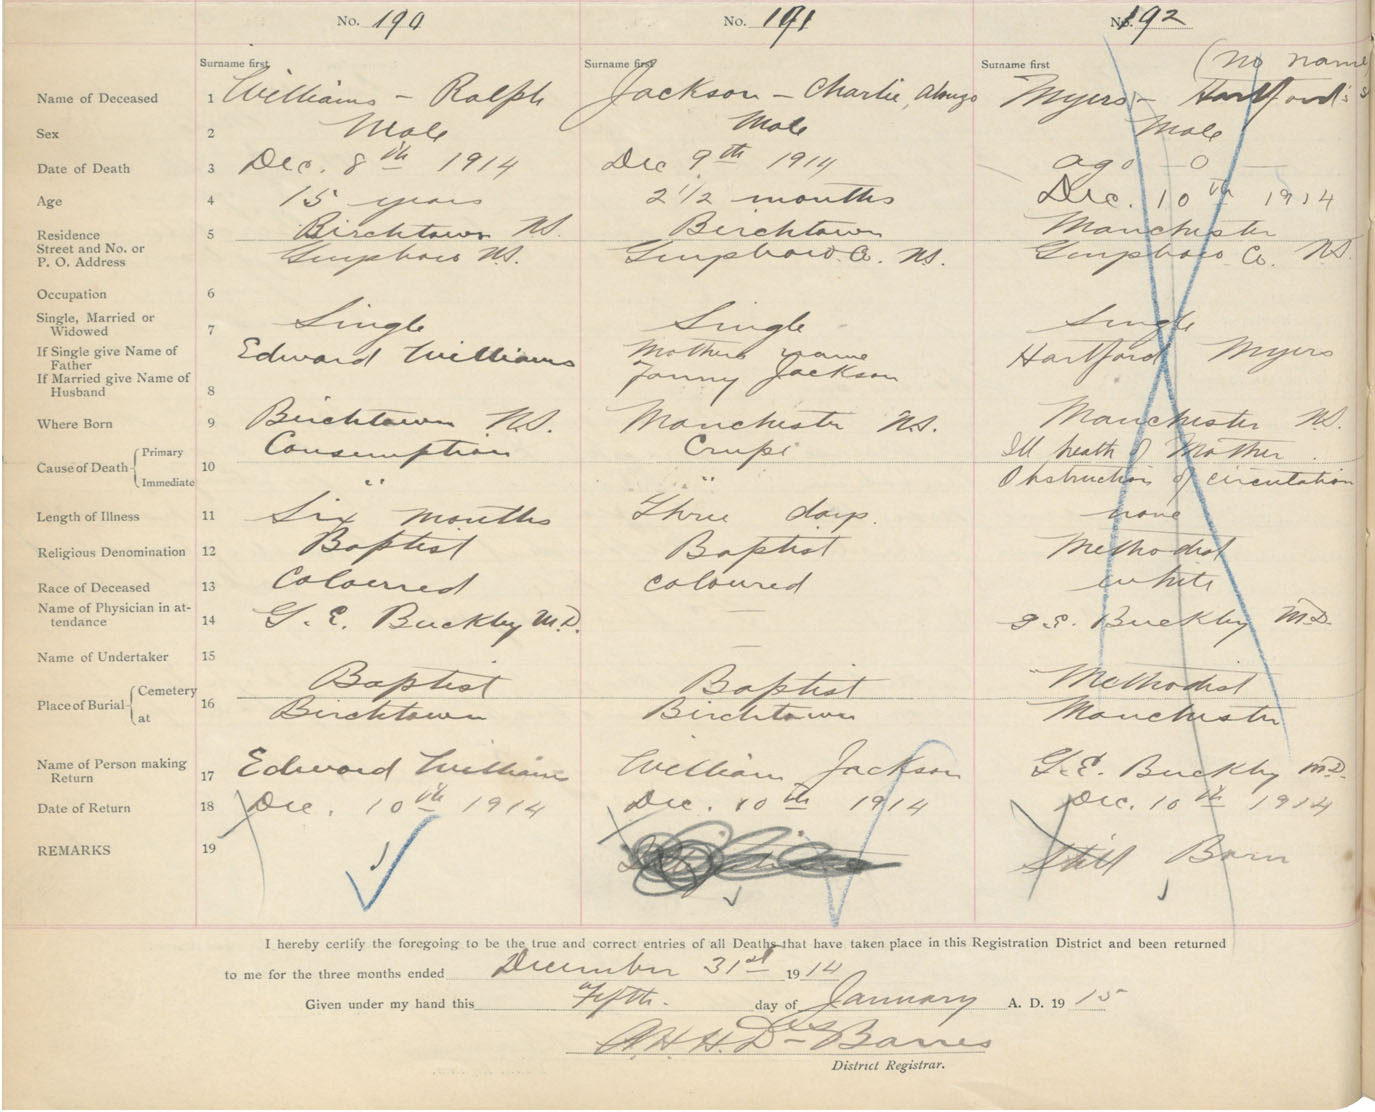 No. 190 No. 191 No. 192
Surname first Surname first Surname first (no name)
Name of Deceased 1 Williams - Ralph Jackson - Charlie, Alonzo Myers - Hartford's s
Sex 2 Male Male Male
Date of Death 3 Dec. 8th 1914 Dec 9th 1914 age - 0 -
Age 4 15 years 2 1/2 months Dec. 10th 1914
Residence 5 Birchtown N.S. Birchtown Manchester
Street and No. or
P. O. Address Guysboro N.S. Guysboro Co. N.S. Guysboro Co. N.S.
Occupation 6
Single, Married or
Widowed 7 Single Single Single
If Single give Name of
Father Edward Williams Mothers name Hartford Myers
If Married give Name of
Husband 8 Fanny Jackson
Where Born 9 Birchtown N.S. Manchester N.S. Manchester N.S.
Cause of Death Primary 10 Consumption Ill health of Mother
Immediate " " Obstruction of circulation
Length of Illness 11 Six months Three days. none
Religious Denomination 12 Baptist Baptist Methodist
Race of Deceased 13 Coloured coloured white
Name of Physician in at-
tendance 14 G. E. Buckley M.D. — G. E. Buckley M.D.
Name of Undertaker 15 —
Place of Burial Cemetery 16 Baptist Baptist Methodist
at Birchtown Birchtown Manchester
Name of Person making
Return 17 Edward Williams William Jackson G. E. Buckley M.D.
Date of Return 18 Dec. 10th 1914 Dec. 10th 1914 Dec. 10th 1914
REMARKS 19 Still Born
I hereby certify the foregoing to be the true and correct entries of all Deaths that have taken place in this Registration District and been returned
to me for the three months ended December 31st 1914
Given under my hand this Fifth. day of January A. D. 1915
A. H. H. DesBarres
District Registrar.